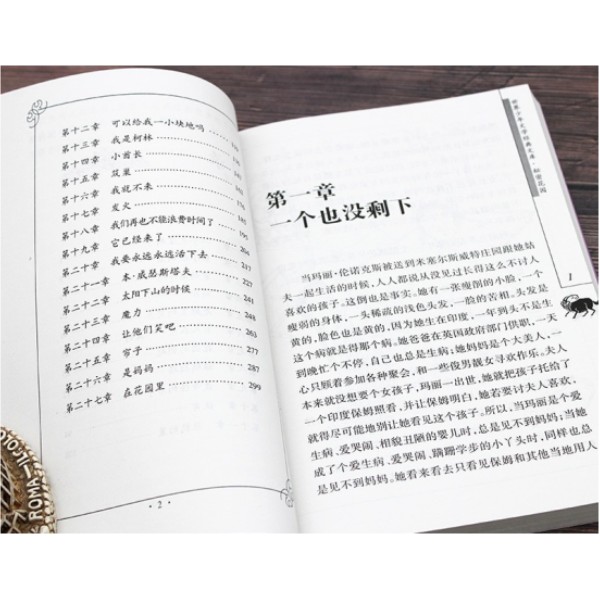 第十二章 可以给我一小块地吗
第十三章 我是柯林
第十四章 小酋长
第十五章 筑巢
第十六章 我就不来
第十七章 发火
第十八章 我们再也不能浪费时间了
第十九章 它已经来了
第二十章 我要永远永远活下去
第二十一章 本·威瑟斯塔夫
第二十二章 太阳下山的时候 241
第二十三章 魔力 247
第二十四章 让他们笑吧 263
第二十五章 帘子 277
第二十六章 是妈妈 287
第二十七章 在花园里 299
·2·
世界少年文学经典文库·秘密花园
1
第一章
一个也没剩下
当玛丽·伦诺克斯被送到米塞尔斯威特庄园跟她姑
夫一起生活的时候，人人都说从没见过长得这么不讨人
喜欢的孩子。这倒也是事实。她有一张瘦倒的小脸，一个
瘦弱的身体，一头稀疏的浅色头发，一脸的苦相。头发是
黄的，脸色也是黄的，因为她生在印度，一年到头不是生
这个病就是得那个病。她爸爸在英国政府部门供职，一天
到晚忙个不停，自己也总是生病；她妈妈是个大美人，一
心只顾着参加各种聚会，和一些俊男靓女寻欢作乐。夫人
本来就没想要个女孩子，玛丽一出世，她就把孩子托给了
一个印度保姆照看，并让保姆明白，她若要讨夫人喜欢，
就得尽可能地别让她看见这个孩子。所以，当玛丽是个爱
生病、爱哭闹、相貌丑陋的婴儿时，总是见不到妈妈；当她
成了个爱生病、爱哭闹、蹒跚学步的小丫头时，同样也总
是见不到妈妈。她看来看去只看见保姆和其他当地用人
ROMA